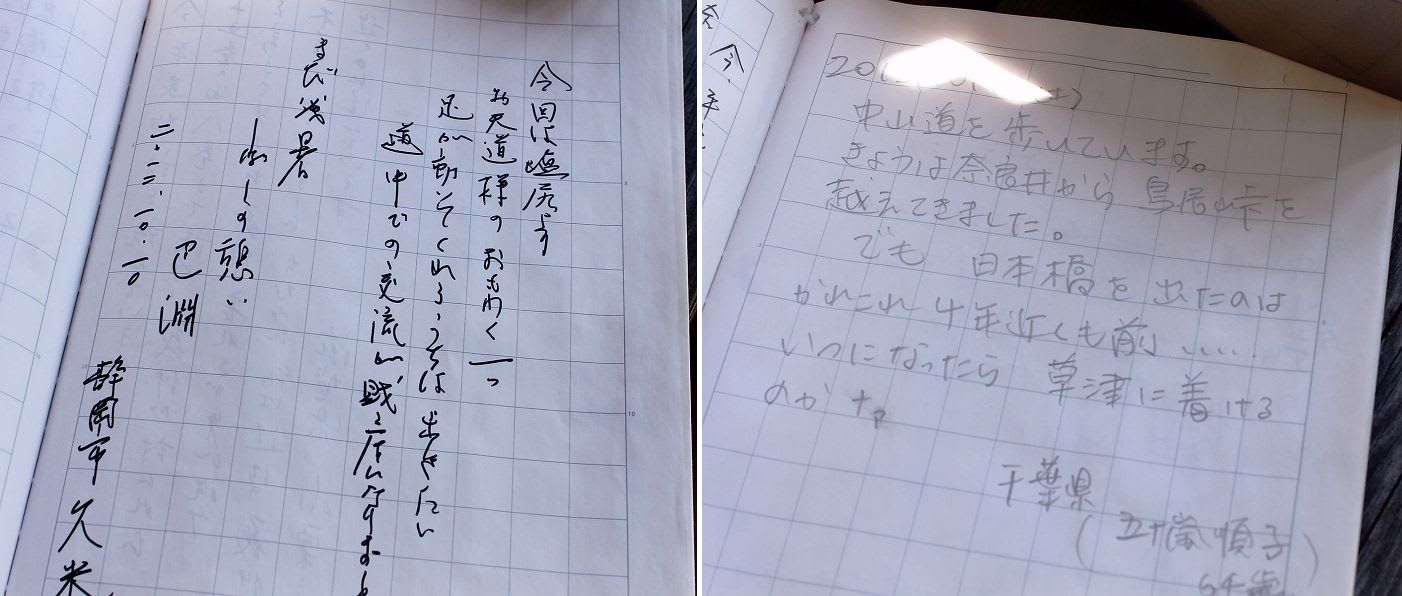 今回は塩尻よ
お天道様のおもわく一つ
足が動いてくれるうちは歩きたい
道中での交流が
きび残暑
憩い
巴淵
二.二.一〇.一〇
静岡市久米
20
中山道を歩いています。
きょうは奈良井から鳥居峠を
越えてきました。
でも 日本橋を出たのは
かれこれ4年近くも前.....
いつになったら 草津に着ける
のかナァ
千葉県
(五十嵐順子)
64歳